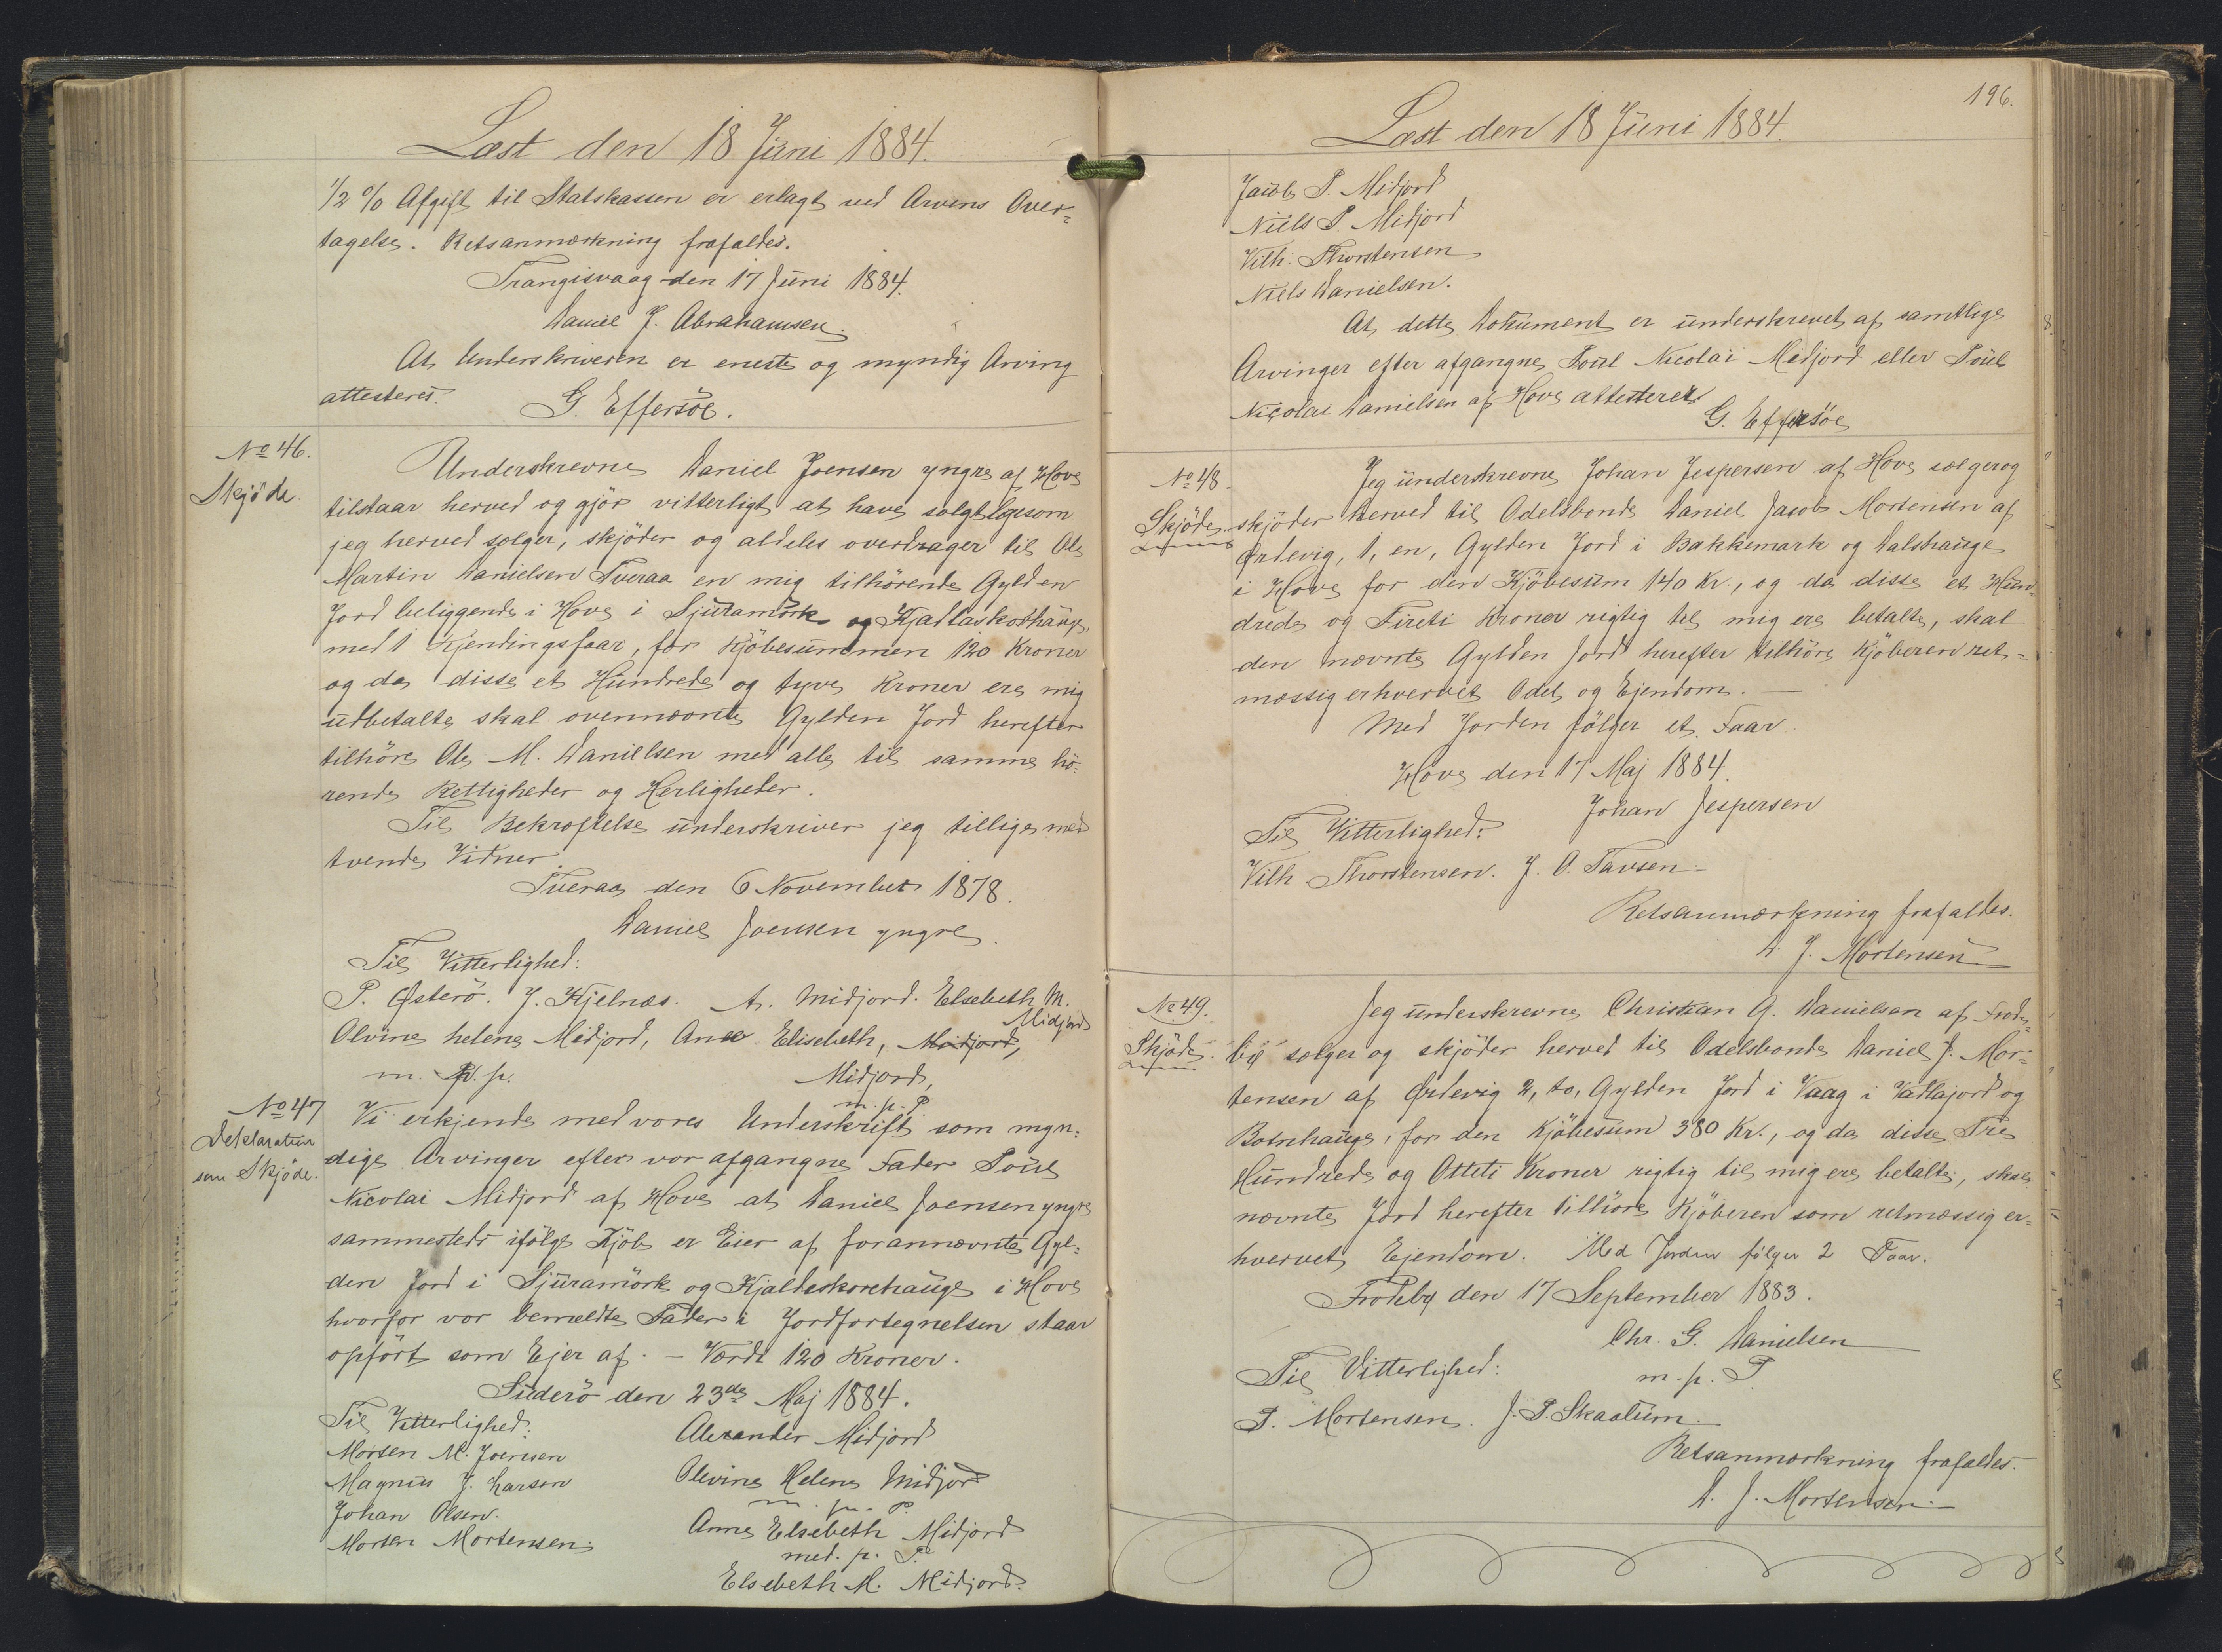 Læst den 18 Juni 1884.
1/2 % Afgift til Statskassen er erlagt ved Arvens Over=
tagelse. Retsanmærkning frafaldes.
Trangisvaag den 17 Juni 1884.
Daniel J. Abrahamsen.
At Underskriveren er eneste og myndig Arving
attesteres.
G. Effersöe.
No 46.
Skjöde.
Underskrevne Daniel Joensen yngre af Hove
tilstaar herved og gjör vitterligt at have solgt ligesom
jeg herved sælger, skjöder og aldeles overdrager til Ole
Martin Danielsen Tveraa en mig tilhörende Gylden
Jord beliggende i Hove i Sjuramörk og Kjallaskorhauge,
med 1 Kjendingsfaar, for Kjöbesummen 120 Kroner
og da disse et Hundrede og tyve Kroner ere mig
udbetalte, skal ovennævnte Gylden Jord herefter
tilhöre Ole M. Danielsen med alle til samme hö=
rende Rettigheder og Herligheder.
Til Bekræftelse underskriver jeg tillige med
tvende Vidner.
Tveraa den 6 November 1878.
Daniel Joensen yngre.
Til Vitterlighed:
P. Østerö. J. Kjelnæs. A. Midjord. Elsebeth M.
Midjord
Olvine helene Midjord, Ane Elisebeth, Midjord,
m. p. p.
Midjord,
m. p. P.
No 47
Deklaration
som Skjöde.
Vi erkjende med vores Underskrift som myn=
dige Arvinger efter vor afgangne Fader Poul
Nicolai Midjord af Hove at Daniel Joensen yngre
sammesteds ifölge Kjöb er Eier af forannævnte Gyl=
den Jord i Sjuramörk og Kjaldeskorehauge i Hove
hvorfor vor bemeldte Fader i Jordfortegnelsen staar
opfört som Ejer af. – Værdi 120 Kroner.
Suderö den 23de Maj 1884.
Til Vitterlighed:
Morten M. Joensen
Magnus J. Larsen
Johan Olsen.
Morten Mortensen.
Alexander Midjord
Olevine Helene Midjord
m. p. P.
Anne Elsebeth Midjord
med. p. P.
Elsebeth M. Midjord.
196.
Læst den 18 Juni 1884.
Jacob P. Midjord
Niels P. Midjord
Vilh. Thorstensen
Niels Danielsen.
At dette Dokument er underskrevet af samtlige
Arvinger efter afgangne Poul Nicolai Midjord eller Poul
Nicolai Danielsen af Hove attesteres
G. Effersöe
No 48.
Skjöde.
Jeg underskrevne Johan Jespersen af Hove sælger og
skjöder herved til Odelsbonde Daniel Jacob Mortensen af
Ørdevig, 1, en, Gylden Jord i Bakkemark og Dalshauge
i Hove for den Kjöbesum 140 Kr., og da disse et Hun=
drede og Fireti Kroner rigtig til mig ere betalte, skal
den nævnte Gylden Jord herefter tilhöre Kjöberen ret=
mæssig erhvervet Odel og Ejendom. —
Med Jorden fölger et Faar.
Hove den 17 Maj 1884.
Johan Jespersen
Til Vitterlighed:
Vilh. Thorstensen. J. O. Tausen.
Retsanmærkning frafaldes.
D. J. Mortensen
No 49.
Skjöde.
Jeg underskrevne Christian G. Danielsen af Frode=
bö sælger og skjöder herved til Odelsbonde Daniel J. Mor=
tensen af Ørdevig 2, to, Gylden Jord i Vaag i Vadlajord og
Botnehauge, for den Kjöbesum 380 Kr., og da disse Tre
Hundrede og Otteti Kroner rigtig til mig ere betalte, skal
nævnte Jord herefter tilhöre Kjöberen som retmæssig er=
hvervet Ejendom. Med Jorden følger 2 Faar.
Frodeby den 17 September 1883.
Chr. G. Danielsen
m. p. P.
Til Vitterlighed:
P. Mortensen. J. P. Skaalum.
Retsanmærkning frafaldes.
D. J. Mortensen.